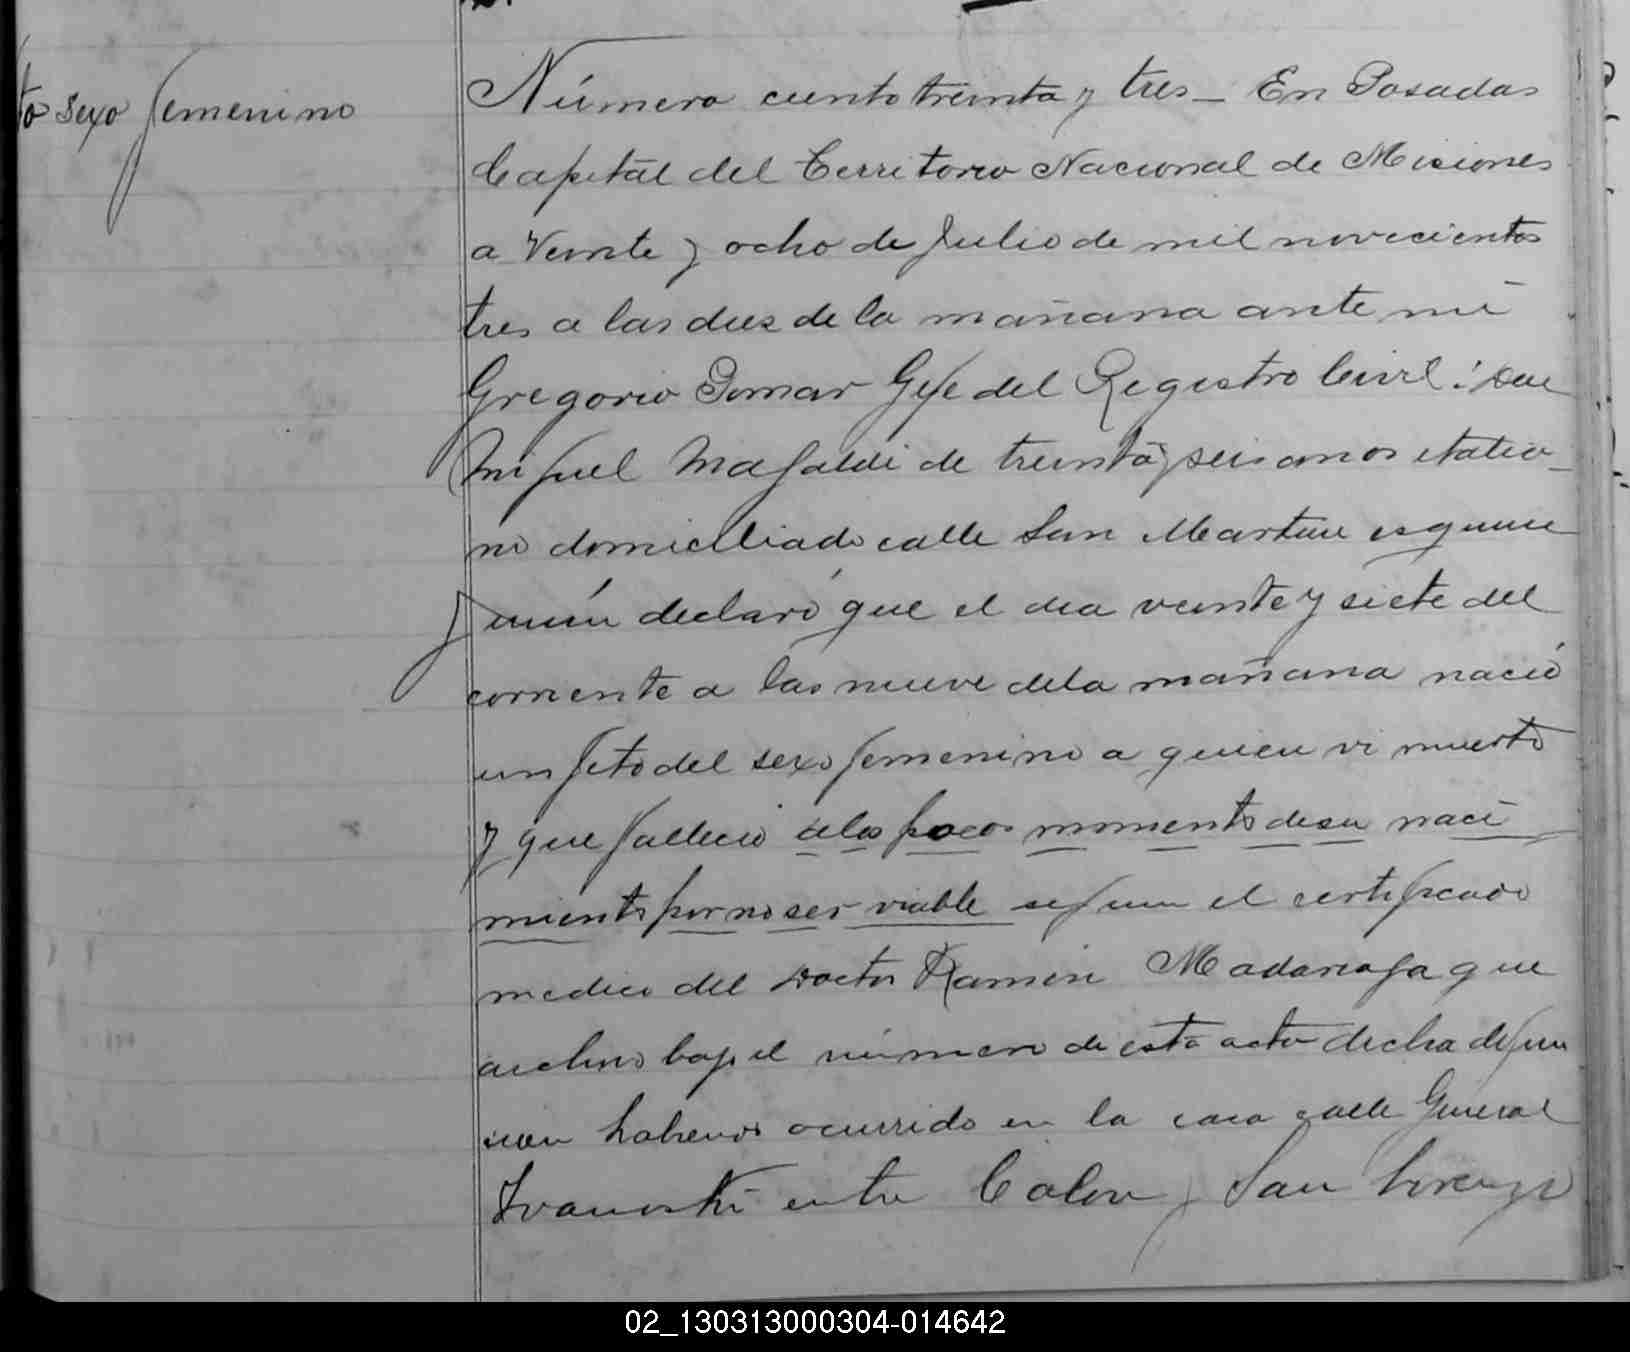 to sexo femenino
Número ciento treinta y tres — En Posadas
Capital del Territorio Nacional de Misiones
a Veinte y ocho de Julio de mil novecientos
tres a las diez de la mañana ante mi
Gregorio Pomar Gefe del Registro Civil: Don
Miguel Magaldi de treinta y seis anos italia-
no domiciliado calle San Martin esquina
Junín declaró que el dia veinte y siete del
corriente a las nueve dela mañana nació
un feto del sexo femenino a quien vi muerto
y que fallecio a los pocos momentos de su naci
miento por no ser viable segun el certificado
medico del Doctor Ramón Madariaga que
archivo bajo el número de esta acta dicha defun
cion habiendo ocurrido en la casa calle General
Ivanoski entre Colon y San Lorenzo
02_130313000304-014642